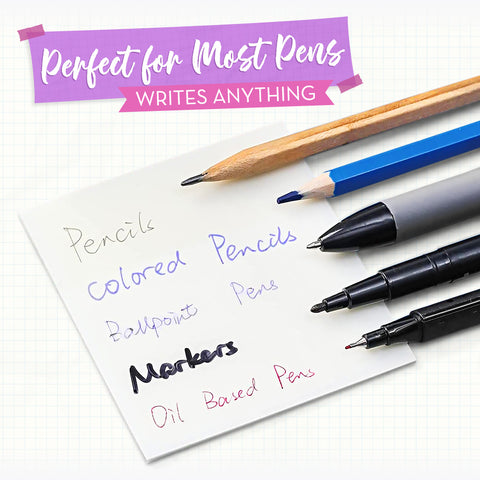 Perfect for Most Pens
WRITES ANYTHING
Pencils
Colored Pencils
Ballpoint Pens
Markers
Oil Based Pens